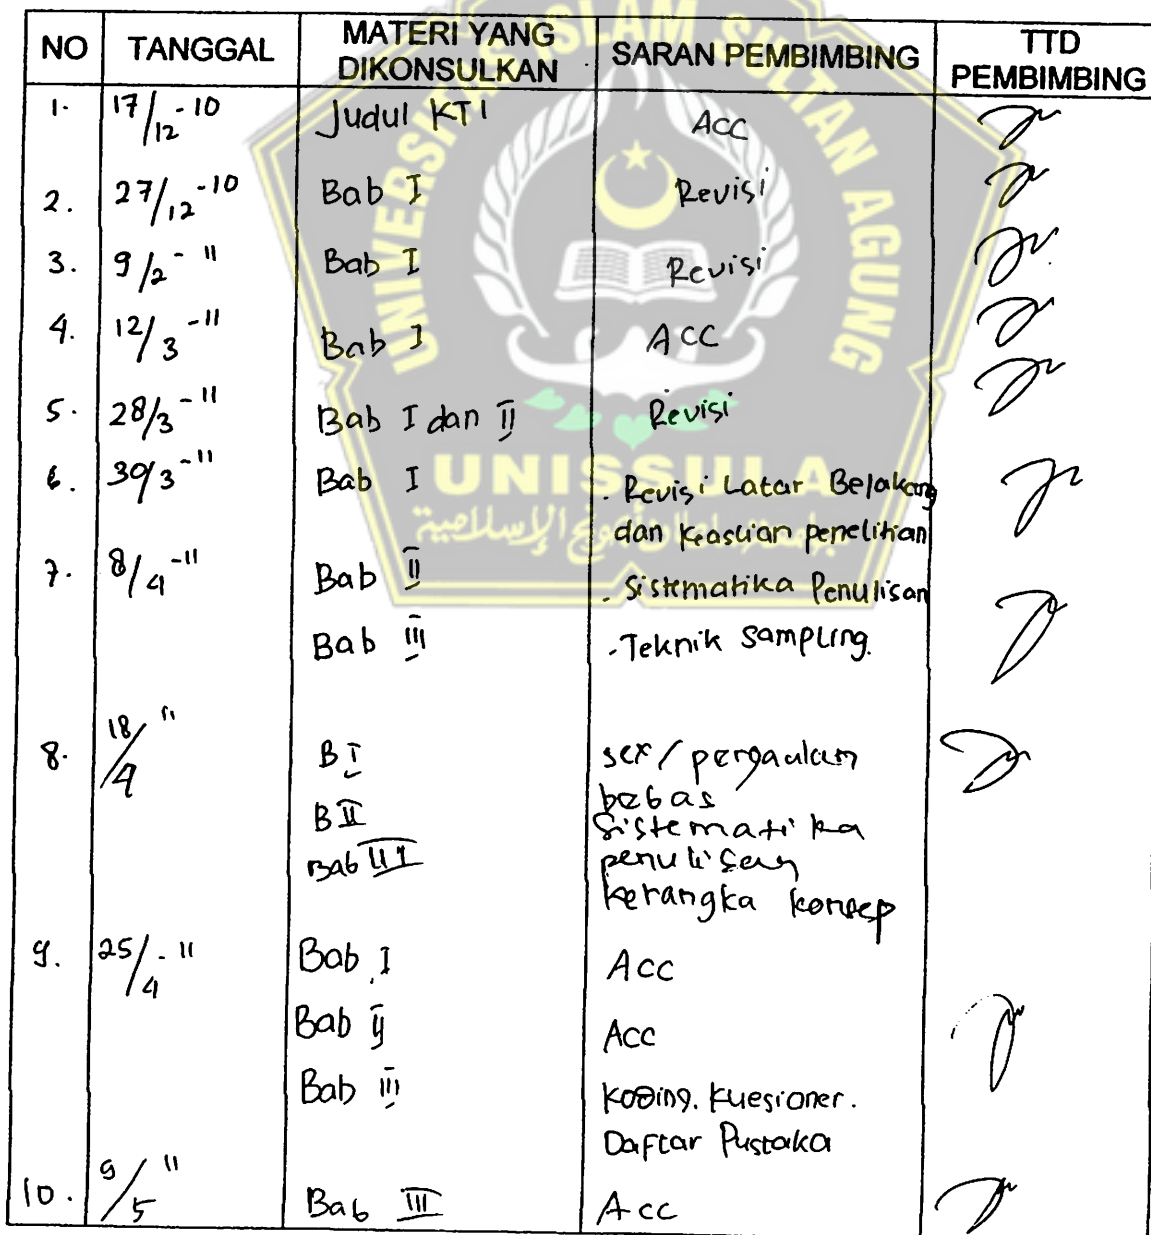 NO TANGGAL MATERI YANG DIKONSULKAN SARAN PEMBIMBING TTD PEMBIMBING
1. 17/12-10 Judul KTI ACC
2. 27/12-10 Bab I Revisi
3. 9/2-11 Bab I Revisi
4. 12/3-11 Bab I ACC
5. 28/3-11 Bab I dan II Revisi
6. 30/3-11 Bab I . Revisi Latar Belakang
dan keaslian penelitian
7. 8/4-11 Bab II . Sistematika Penulisan
Bab III - Teknik Sampling.
8. 18/4 11 B I sex / pergaulan
bebas
B II Sistematika
Bab III penulisan
kerangka konsep
9. 25/4-11 Bab I Acc
Bab II Acc
Bab III Koding. Kuesioner.
Daftar Pustaka
10. 9/5 11 Bab III Acc
UNIVERSITAS ISLAM SULTAN AGUNG
UNISSULA
جامعة سلطان أجونج الإسلامية